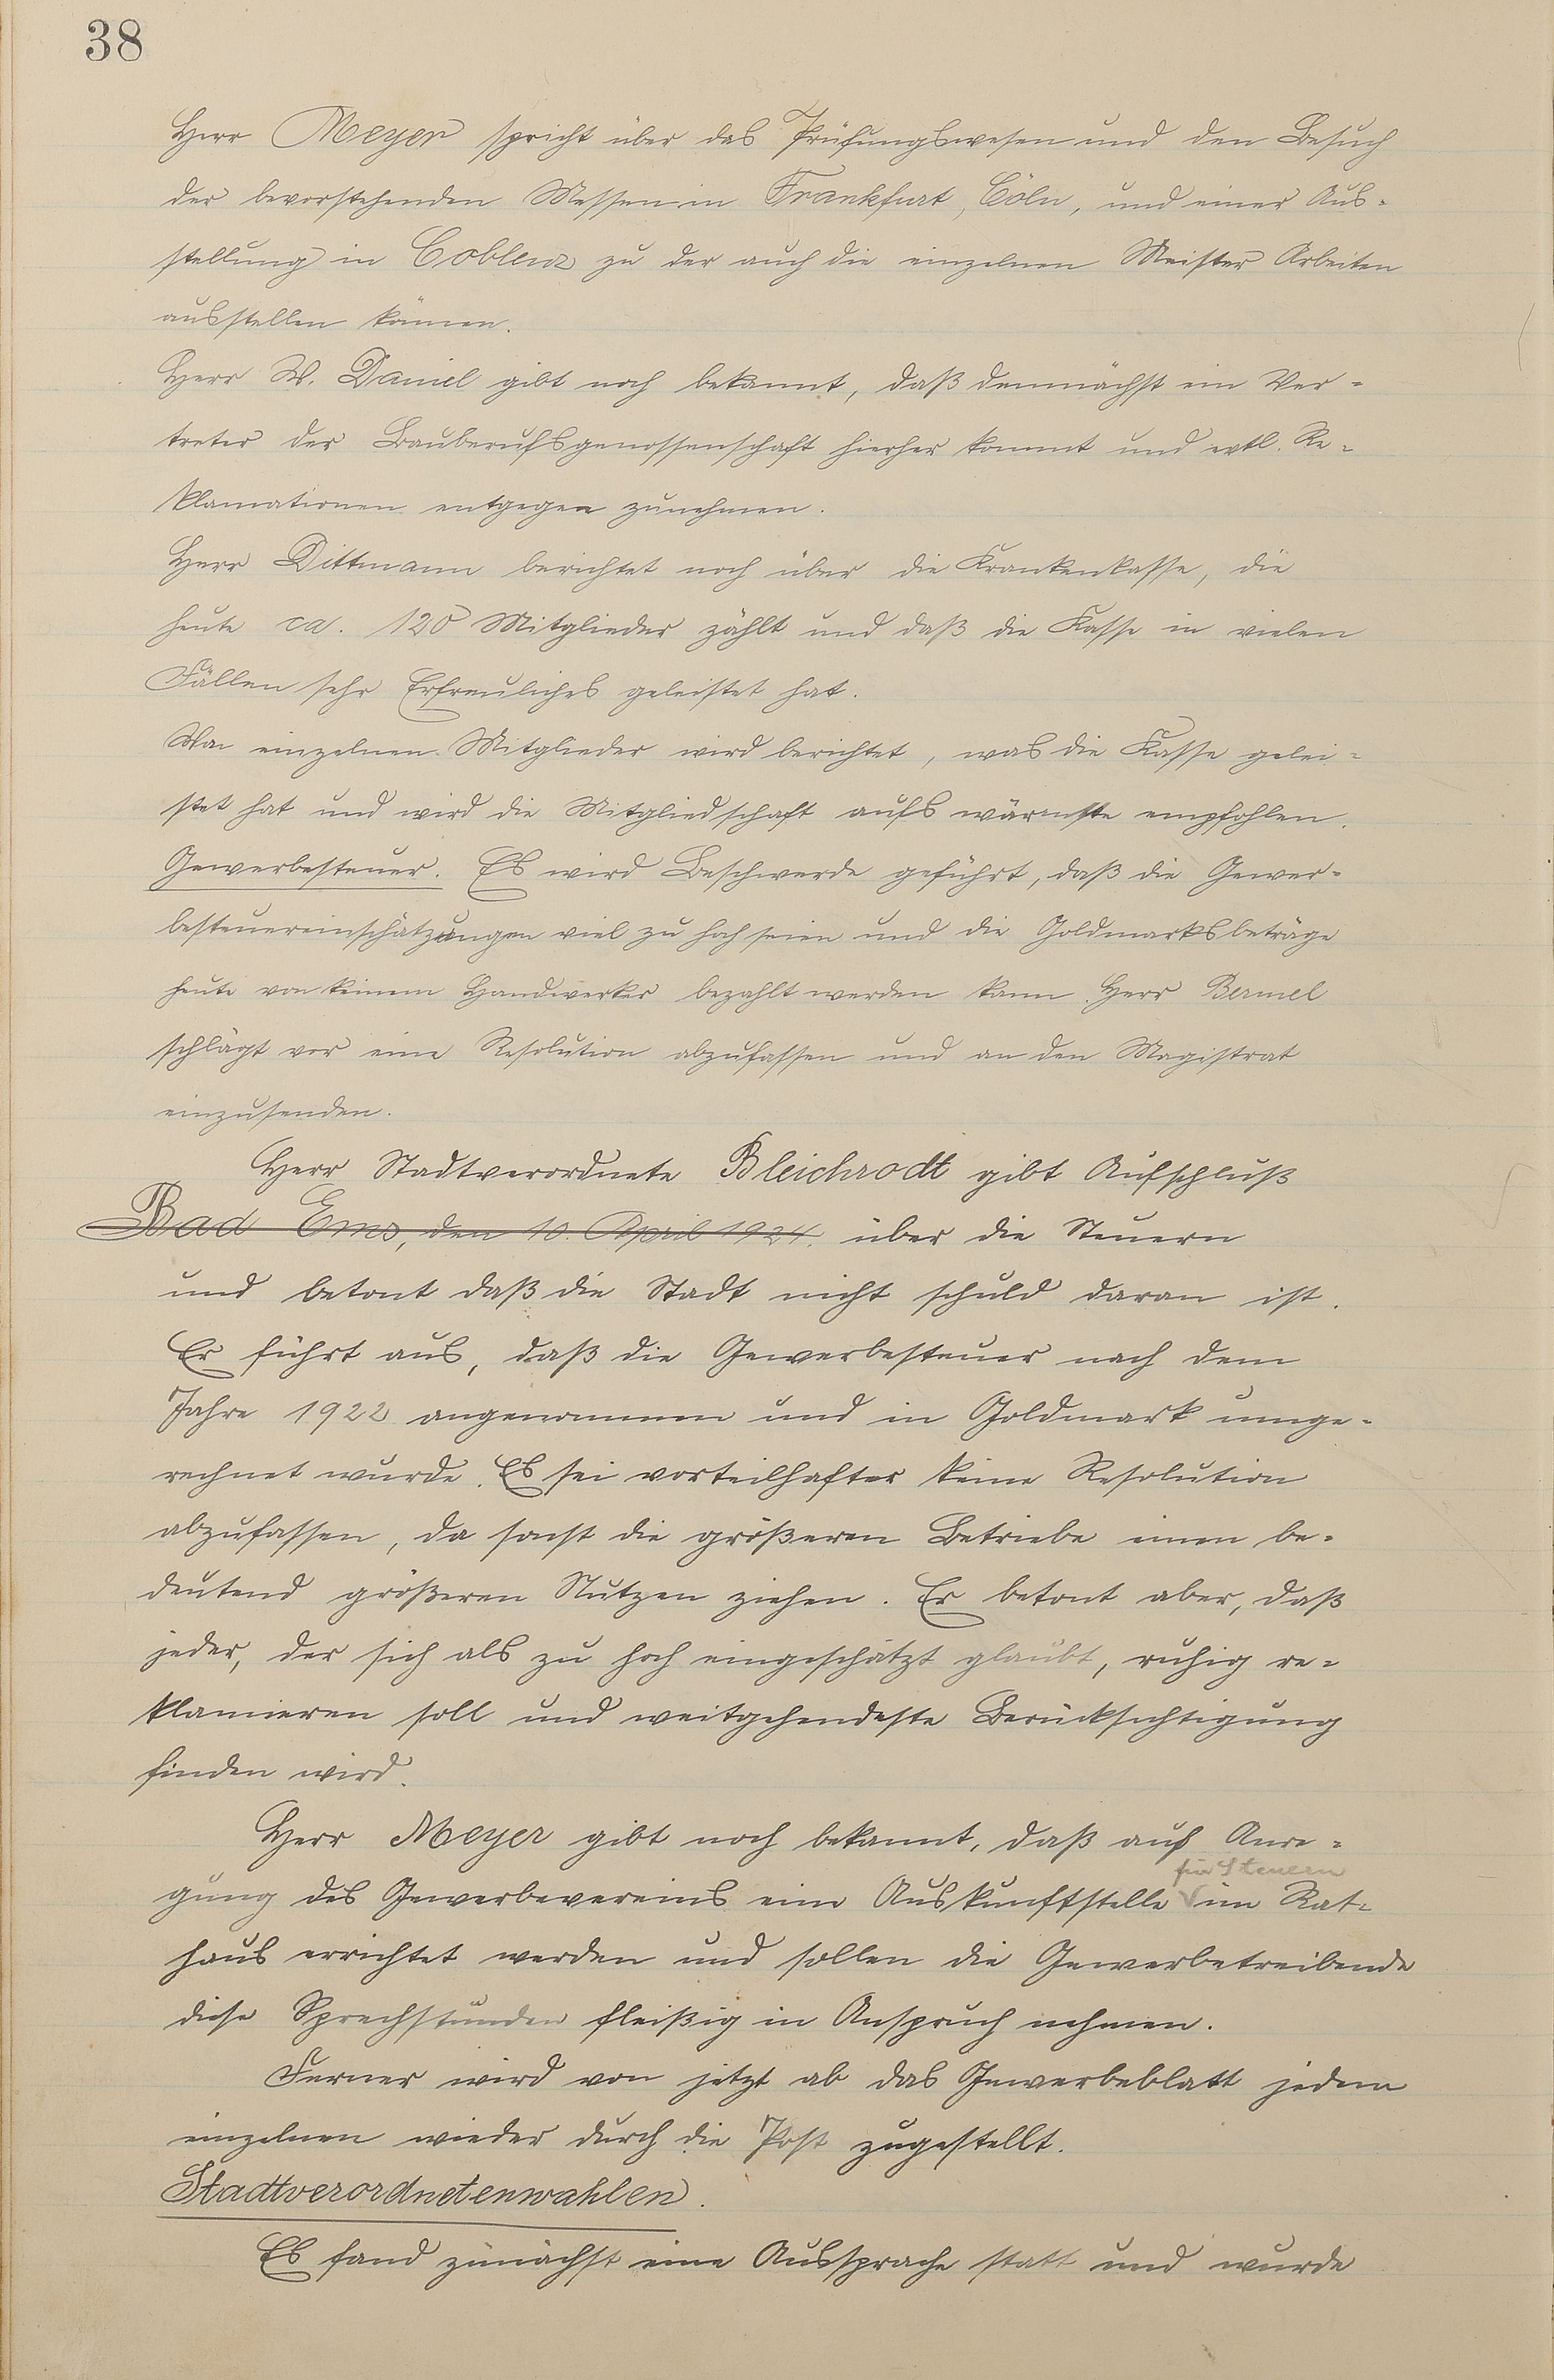 38
Herr Meyer spricht über das Prüfungswesen und den Besuch
der bevorstehenden Messen in Frankfurt, Cöln, und einer Aus-
stellung in Coblenz zu der auch die einzelnen Meister Arbeiten
ausstellen können.
Herr W. Daniel gibt noch bekannt, daß demnächst ein Ver-
treter der Bauberufsgenossenschaft hierher kommt und evtl. Re-
klamationen entgegen zunehmen.
Herr Dittmann berichtet noch über die Krankenkasse, die
heute ca. 120 Mitglieder zählt und daß die Kasse in vielen
Fällen sehr Erfreuliches geleistet hat.
Von einzelnen Mitglieder wird berichtet, was die Kasse gelei-
stet hat und wird die Mitgliedschaft aufs wärmste empfohlen.
Gewerbesteuer. Es wird Beschwerde geführt, daß die Gewer-
besteuereinschätzungen viel zu hoch seien und die Goldmarksbeträge
heute von keinem Handwerker bezahlt werden kann. Herr Bermel
schlägt vor eine Resolution abzufassen und an den Magistrat
einzusenden.
Herr Stadtverordnete Bleichrodt gibt Aufschluß
Bad Ems, den 10. April 1924. über die Steuern
und betont daß die Stadt nicht schuld daran ist.
Er führt aus, daß die Gewerbesteuer nach dem
Jahre 1922 angenommen und in Goldmark umge-
rechnet wurde. Es sei vorteilhafter keine Resolution
abzufassen, da sonst die größeren Betriebe einen be-
deutend größeren Nutzen ziehen. Er betont aber, daß
jeder, der sich als zu hoch eingeschätzt glaubt, ruhig re-
klamieren soll und weitgehendeste Berücksichtigung
finden wird.
Herr Meyer gibt noch bekannt, daß auf Anre-
für Steuern
gung des Gewerbevereins eine Auskunftstelle im Rat-
haus errichtet werden und sollen die Gewerbetreibende
diese Sprechstunden fleißig in Anspruch nehmen.
Ferner wird von jetzt ab das Gewerbeblatt jedem
einzelnen wieder durch die Post zugestellt.
Stadtverordnetenwahlen.
Es fand zunächst eine Aussprache statt und wurde